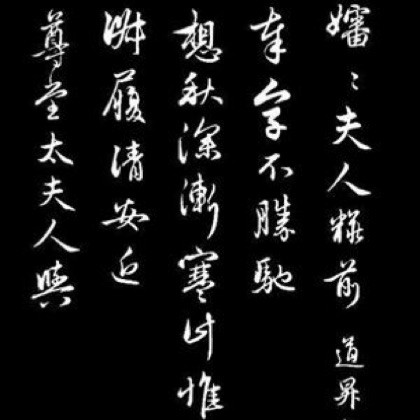 嬸〻夫人糚前道昇
奉字不勝馳
想秋深漸寒計惟
淑履清安近
尊堂太夫人與